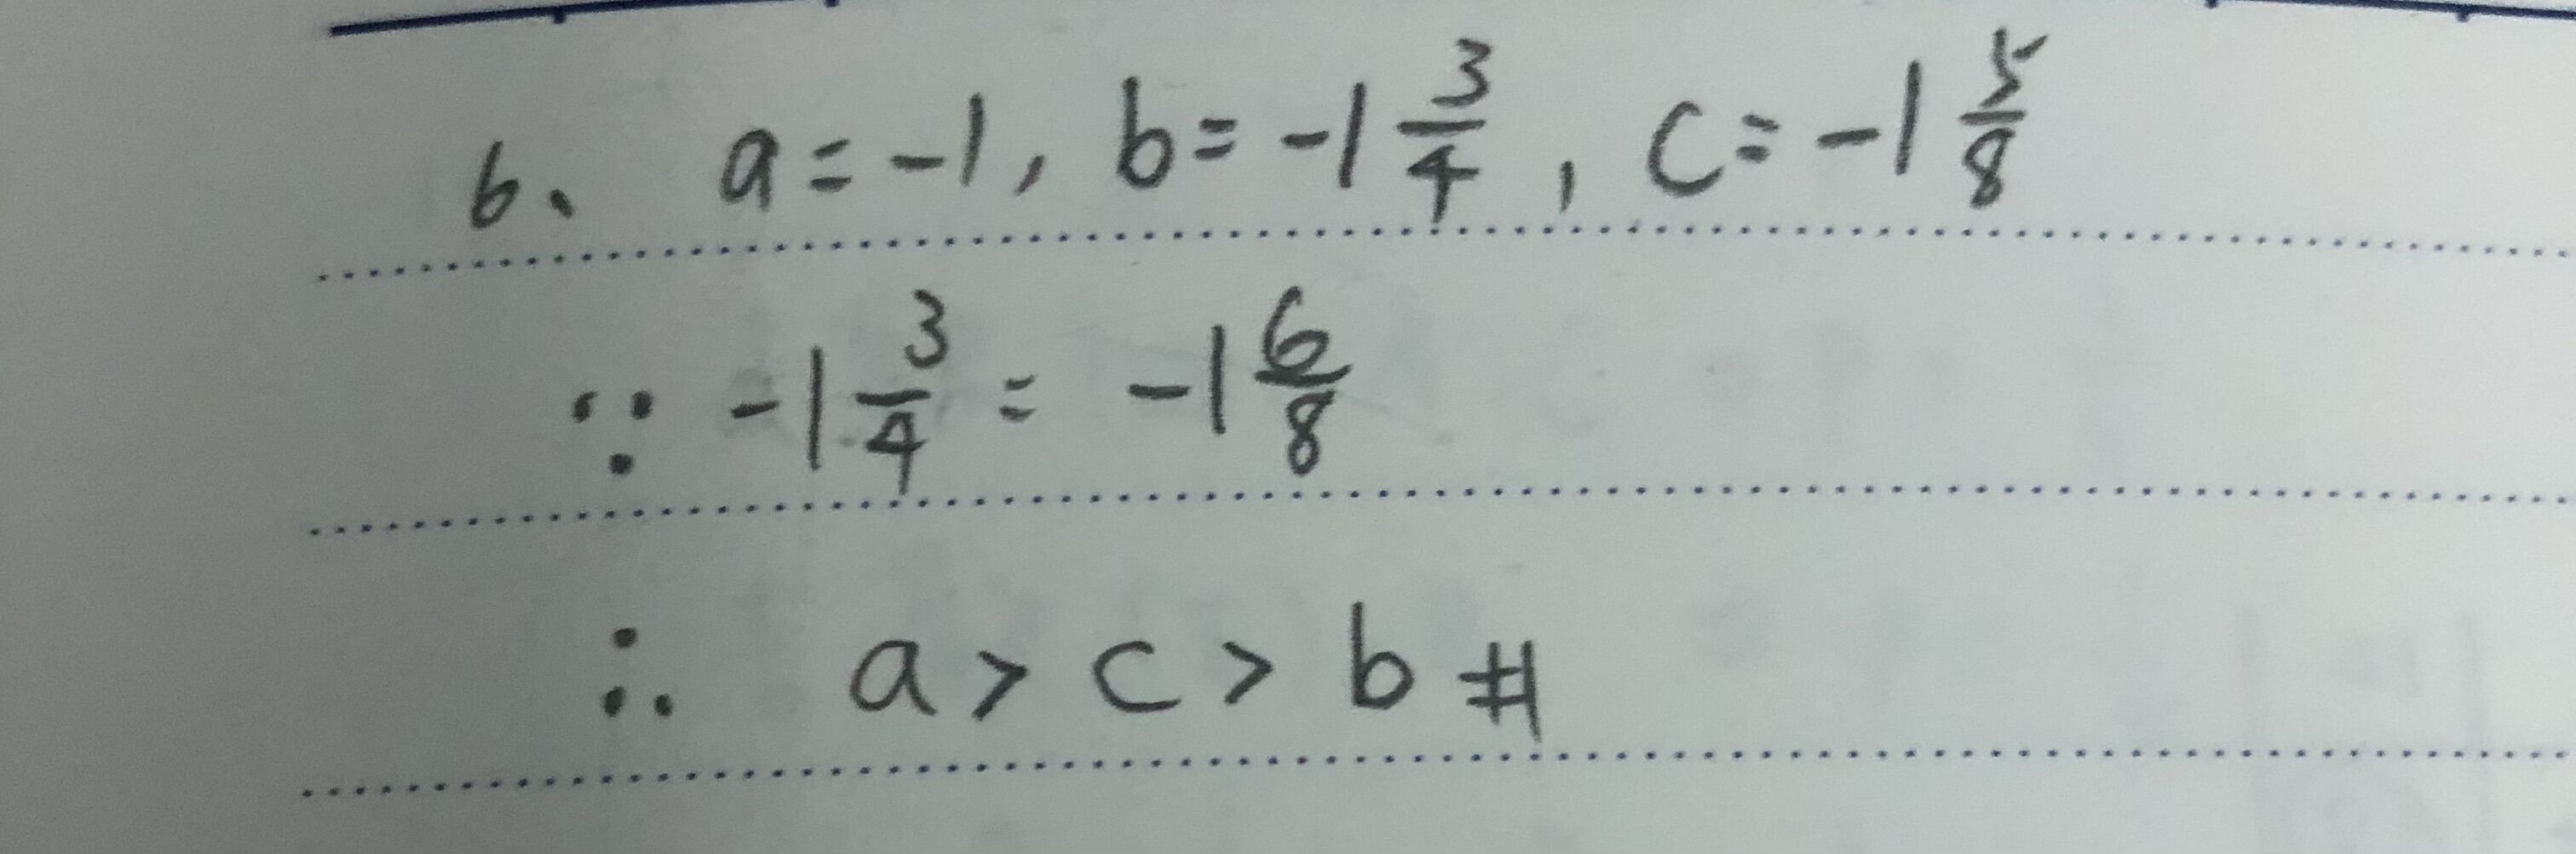 6、 a = -1, b = -1 3/4, c = -1 5/8
∵ -1 3/4 = -1 6/8
∴ a > c > b #